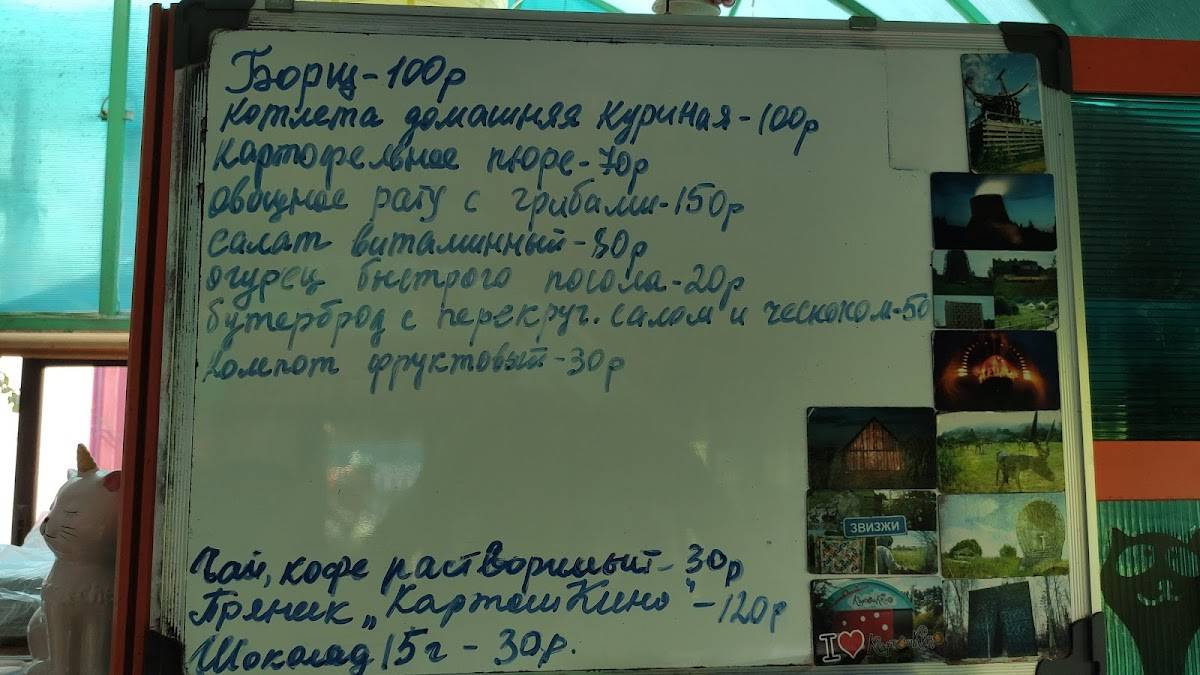 Борщ - 100р
котлета домашняя куриная - 100р
картофельное пюре - 70р
овощное рагу с грибами - 150р
салат витаминный - 80р
огурец быстрого посола - 20р
бутерброд с перекруч. салом и чесноком - 50
компот фруктовый - 30р
Чай, кофе растворимый - 30р
Пряник „КартошКино" - 120р
Шоколад 15г - 30р.
ЗВИЗЖИ
I